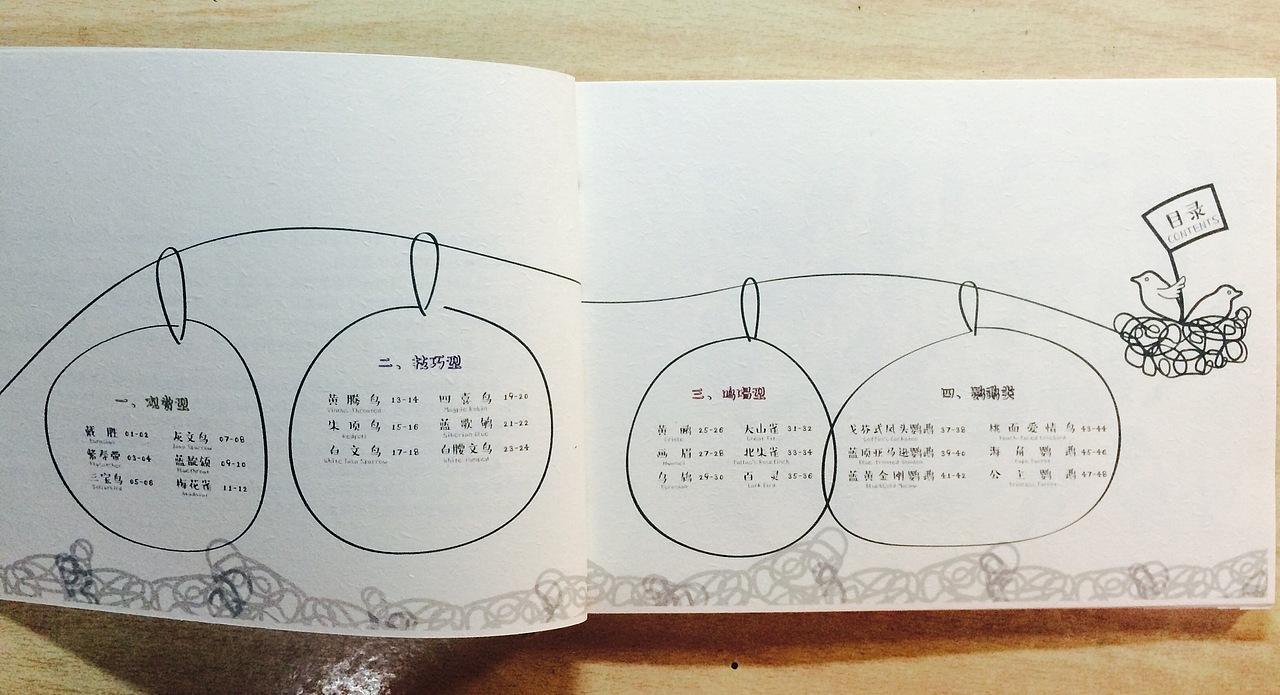 目录
CONTENTS
一、观赏型
戴胜 01-02 灰文鸟 07-08
Java Sparrow
紫寿带 03-04 蓝歌鸲 09-10
Flycatcher Bluethroat
三宝鸟 05-06 梅花雀 11-12
二、技巧型
黄腾鸟 13-14 四喜鸟 19-20
Magpie Robin
朱顶鸟 15-16 蓝歌鸲 21-22
Redpoll Siberian Blue
白文鸟 17-18 白腰文鸟 23-24
White Java Sparrow White Rumped
三、鸣唱型
黄鹂 25-26 大山雀 31-32
Oriole Great Tit
画眉 27-28 北朱雀 33-34
Hwamei Pallas's Rosefinch
乌鸫 29-30 百灵 35-36
Lark Bird
四、鹦鹉类
戈芬式凤头鹦鹉 37-38 桃面爱情鸟 43-44
Goffin's Cockatoo Peach-faced Lovebird
蓝顶亚马逊鹦鹉 39-40 海角鹦鹉 45-46
Blue-fronted Amazon Cape Parrot
蓝黄金刚鹦鹉 41-42 公主鹦鹉 47-48
Blue&Gold Macaw Princess Parrot